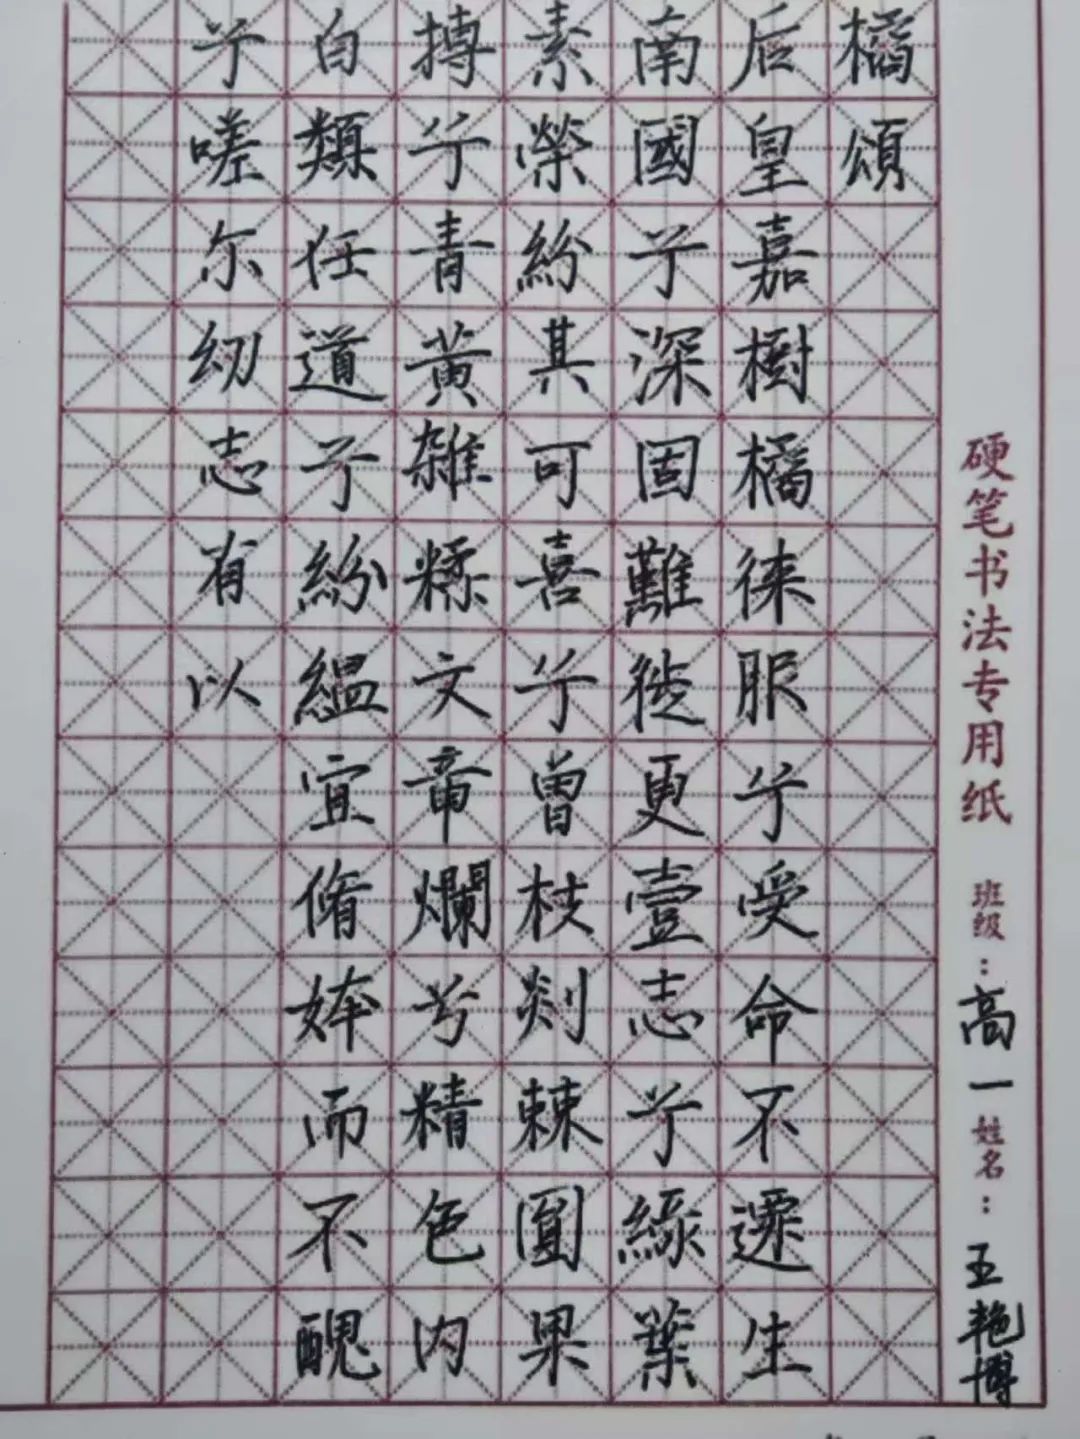 橘頌
后皇嘉樹橘徠服兮受命不遷生
南國兮深固難徙更壹志兮緑葉
素榮紛其可喜兮曾枝剡棘圓果
摶兮青黃雑糅文章爛兮精色内
白類任道兮紛緼宜脩姱而不醜
兮嗟尔幼志有以
硬笔书法专用纸 班级：高一 姓名：王艳博